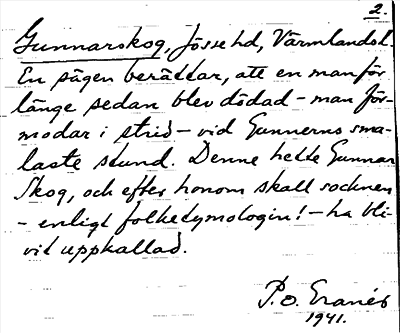 2.
Gunnarskog, Jösse hd, Värmlands l.
En sägen berättar, att en man för
länge sedan blev dödad – man för-
modar i strid – vid Gunnerns sma-
laste sund. Denne hette Gunnar
Skog, och efter honom skall socknen
– enligt folketymologin! – ha bli-
vit uppkallad.
P. O.
1941.